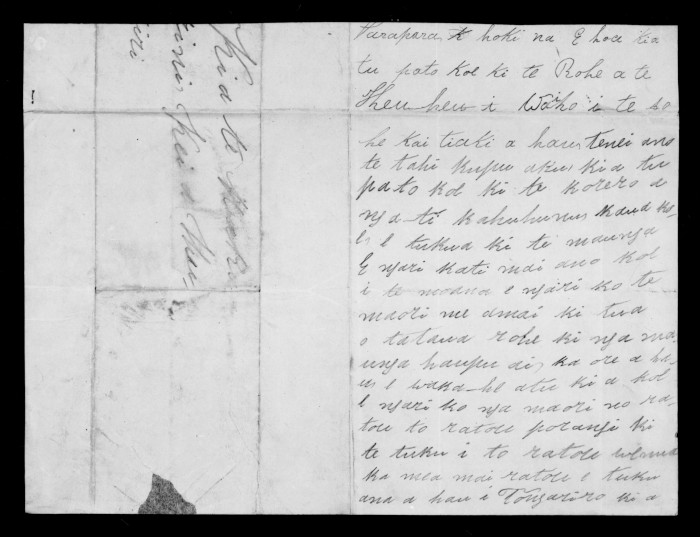 Parapara, E hoki na E hoa kia
tu pato koe ki te Rohe a te
Heuheu i Waho i te he
he kai tiaki a hau, tenei ano
te tahi kupu aku, kia tu
pato koe ki te korero a
nga ti kahuhunu, kaua ko
e, e tukua ki te maunga
E ngari kati mai ano koe
i te moana e ngari ko te
maori me amai ki tua
o tatawa rohe ki nga ma
unga haupu ai, ka ore a ha
u, e waka he atu ki a koe
e ngari ko nga maori no ra
tou to ratou porangi ki
te tuku i to ratou
ka mea mai ratou e tuku
ana a hau i Tongariro ki a
Kia te
Kei a